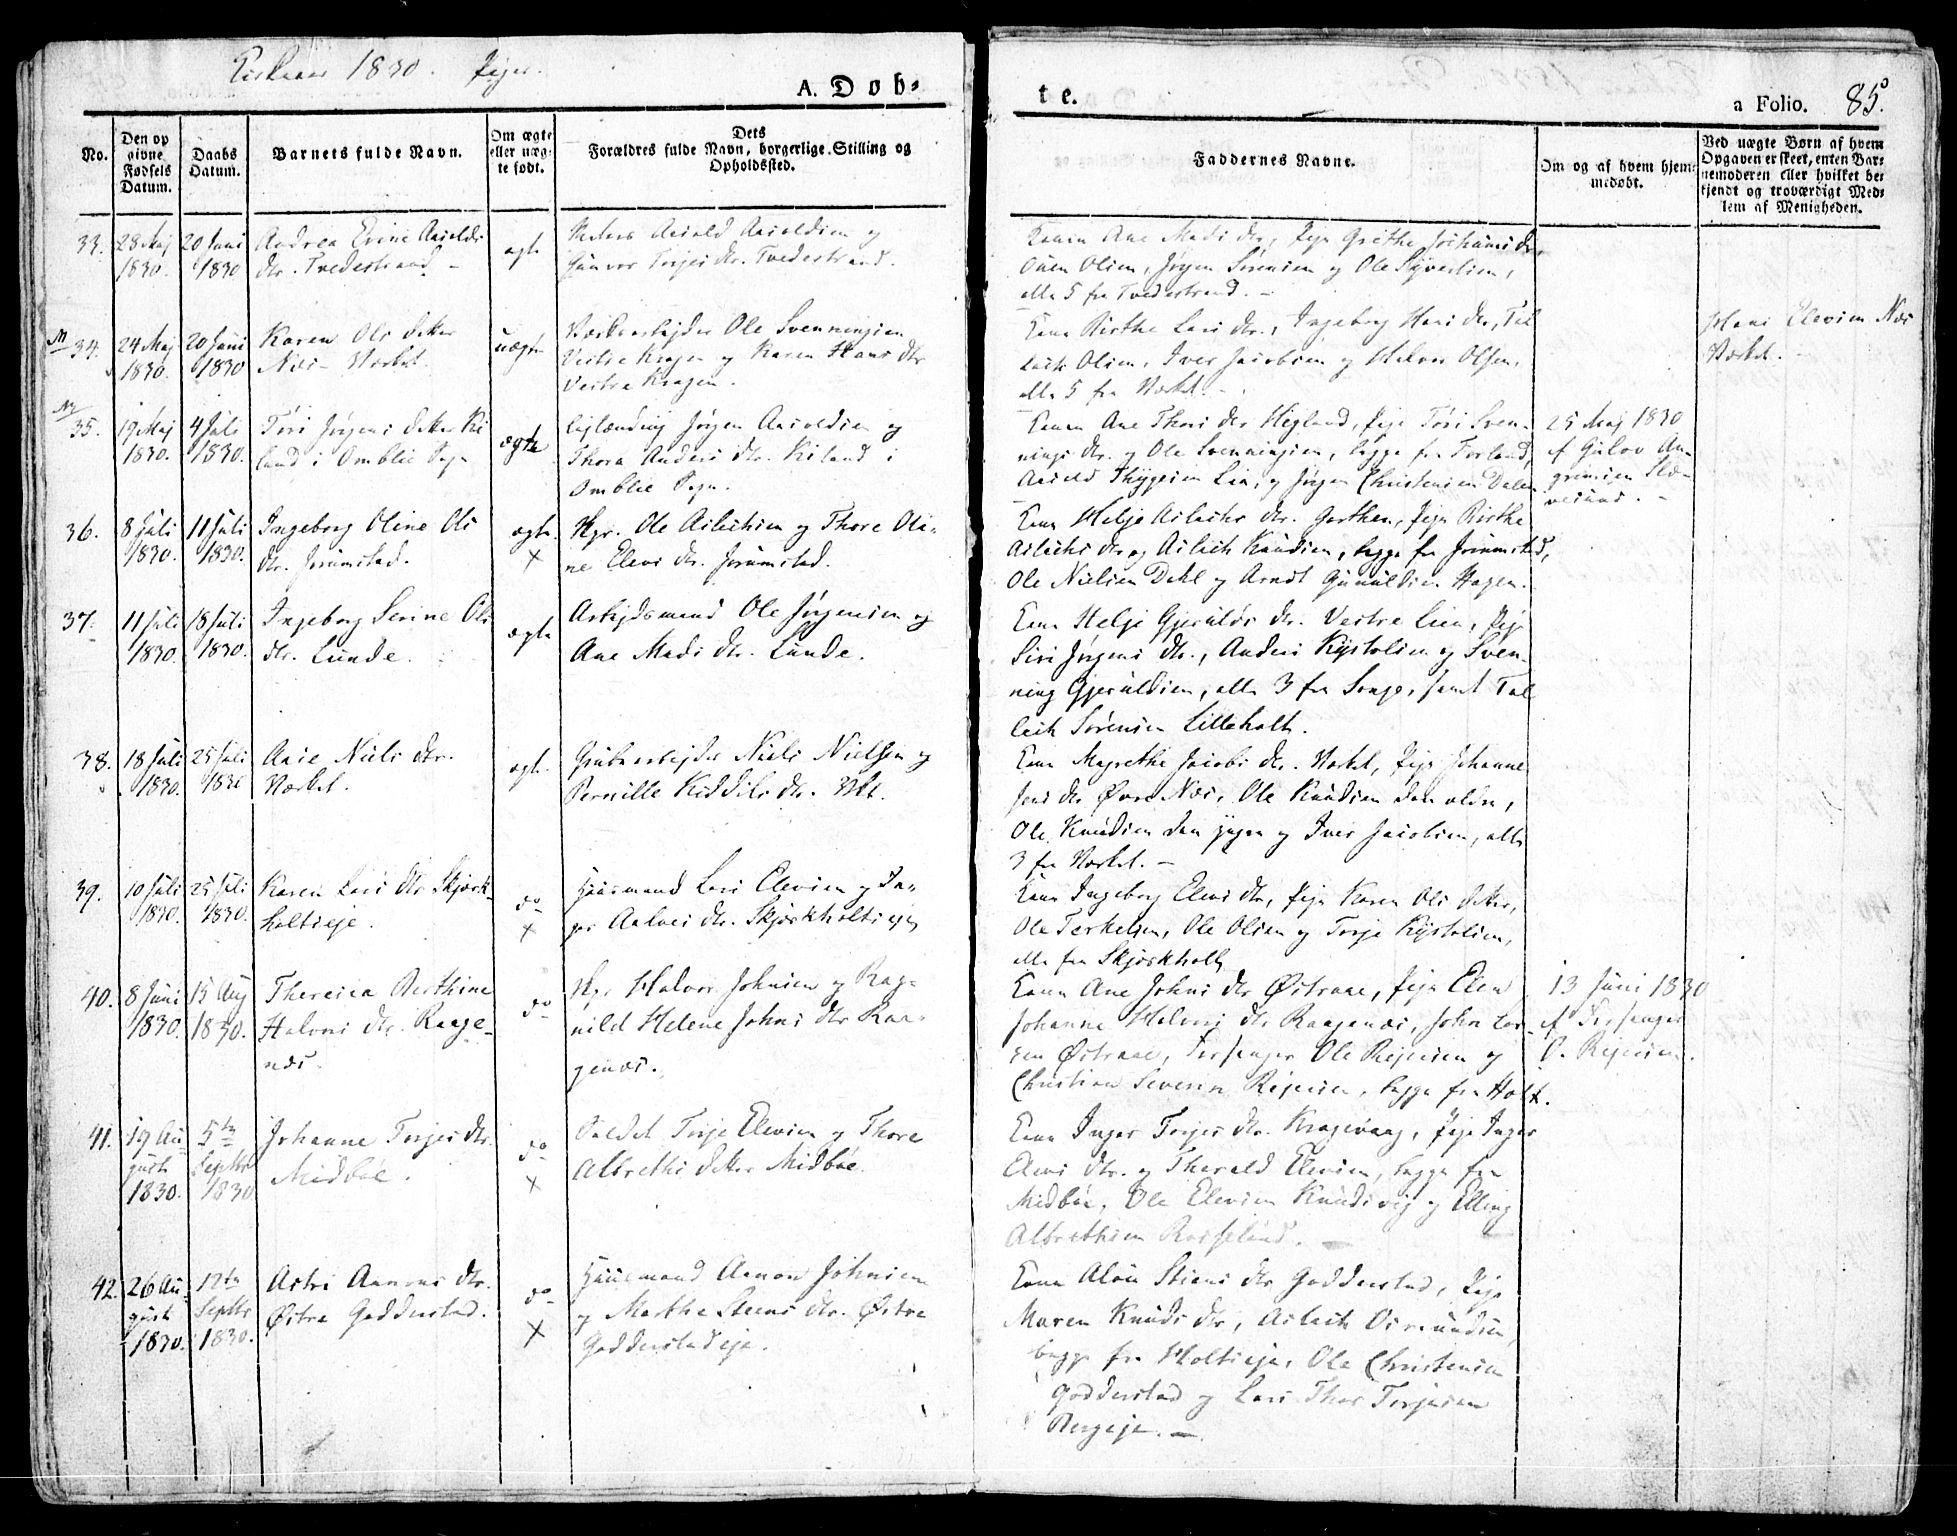 Kirkeaar 1830. Piger.
A. Døb-
te.
a Folio. 85.
No.
Den op
givne
Fødsels
Datum.
Daabs
Datum.
Barnets fulde Navn.
Om ægte
eller uæg-
te født.
Dets
Forældres fulde Navn, borgerlige Stilling og
Opholdssted.
Faddernes Navne.
Om og af hvem hjem-
medøbt.
Ved uægte Børn af hvem
Opgaven er skeet, enten Bar-
nemoderen eller hvilket be-
kjendt og troværdigt Med-
lem af Menigheden.
33.
28 Maj
1830.
20 Juni
1830
Andrea Evine Aasolds
dtr. Tvedestrand
ægte
Aasold Aasoldsen og
Gunvor Torjes dtr. Tvedestrand.
Konen Ane Mads dtr, Pige Grethe
Ouen Olsen, Jørgen Sørensen og Ole Syvertsen,
alle 5 fra Tvedestrand.
34.
24 Maj
1830.
20 Juni
1830
Karen Ols datter
Næs-Værket.
uægte
Værksarbejder Ole Svenningsen
Vestre Kragen og Karen Hans dtr
Vestre Kragen.
Kone Birthe Lars dtr., Ingeborg Hans dtr, Tal
lack Olsen, Iver Jacobsen og Halvor Olsen,
alle 5 fra Værket.
Hans Elevsen Næs
Værket.
35.
19 Maj
1830.
4 Juli
1830.
Tóri Jørgens datter Ki
land i Omblie Sogn
ægte
Jørgen Aasoldsen og
Thora Anders dtr. Kiland i
Omblie Sogn.
Konen Ane Thors dtr Højland, Pige Tóri Sven-
nings dtr. og Ole Svenningsen, begge fra
Aasold Thygesen Lia, og Jørgen Christensen Dalen
25 Maj 1830
af Gulov
36.
8 Juli
1830.
11 Juli
1830.
Ingeborg Oline Ols
dtr. Jorumstad.
ægte
×
Hgr. Ole Asleksen og Thore Oli-
ne Elevs dtr. Jorumstad.
Kone Helje Asleks dtr. Garthen, Pige Birthe
Asleks dtr og Aslech Knudsen, begge fra Jorumstad,
Ole Nielsen Dahl og Arndt Gunuldsen Hagen.
37.
11 Juli
1830.
18 Juli
1830.
Ingeborg Serine Ols
dtr. Lunde.
ægte
Arbejdsmand Ole Jørgensen og
Ane Mads dtr. Lunde.
Kone Helje Gjerulds dtr. Vestre Lien, Pige
Siri Jørgens dtr., Anders Kystolsen og Sven-
ning Gjeruldsen, alle 3 fra Songe, samt Tal
leck Sørensen Lilleholt.
38.
18 Juli
1830.
25 Juli
1830
Aase Niels dtr.
Værket.
ægte.
Grubearbejder Niels Nielsen og
Pernille Kiddils dtr. Vkt.
Kone Magrethe Jacobs dtr. Værket, Pige Johanne
Jens dtr Øvre Næs, Ole Knudsen den ældre,
Ole Knudsen den yngre og Iver Jacobsen, alle
3 fra Værket.
39.
10 Juli
1830.
25 Juli
1830.
Karen Lars dtr Skjørk-
holtseje.
do
×
Huusmand Lars Elevsen og In-
ger Aalves dtr. Skjørkholtseje
Kone Ingeborg Elevs dtr, Pige Karen Ols datter,
Ole Terkelsen, Ole Olsen og Torje Kystolsen,
alle fra Skjørkholt
40.
8 Juni
1830.
15 Aug
1830.
Theresia Berthine
Halvors dtr. Raage-
næs.
do
Hgr Halvor Johnsen og Rag-
nild Helene Johns dtr Raa-
genæs.
Kone Ane Johns dtr Østraae, Pige Elen
Johanne Halvors dtr Raagenæs, John Lar-
sen Østraae, Ole Rejersen og
Christian Severin Rejersen, begge fra Holt.
13 Juni 1830
af
O. Rejersen.
41.
19 Au-
gust
1830.
5te
Septbr
1830
Johanne Torjes dtr.
Midbøe.
do
×
Soldat Torje Elevsen og Thore
Albreths datter Midbøe.
Kone Inger Torjes dtr. Kragevaag, Pige Inger
Elevs dtr. og Therald Elevsen, begge fra
Midbøe, Ole Elevsen Knudsvig og Elling
Albrethsen
42.
26 Au-
gust
1830.
12te
Septbr
1830.
Astri Aanons dtr.
Østre Godderstad.
do
×
Huusmand Aanon Johnsen
og Marthe Steens dtr. Østre
Godderstadeje.
Kone Aloue Stiens dtr Godderstad, Pige
Maren Knuds dtr, Aslach
begge fra Holtseje, Ole Christensen
Godderstad og Lars Thor Torjesen
Bergeje.